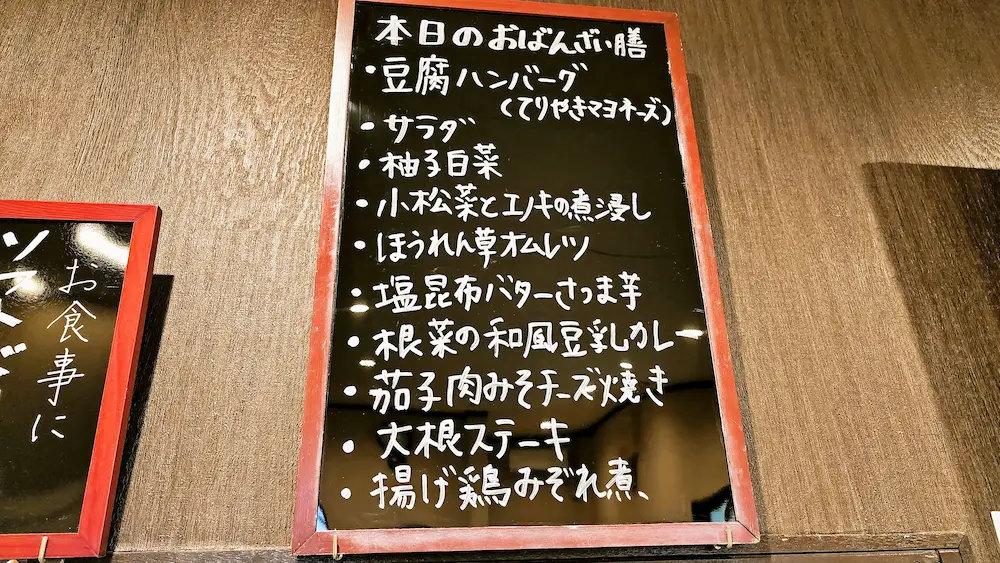 本日のおばんざい膳
・豆腐ハンバーグ
(てりやきマヨネーズ)
・サラダ
・柚子白菜
・小松菜とエノキの煮浸し
・ほうれん草オムレツ
・塩昆布バターさつま芋
・根菜の和風豆乳しカレー
・茄子肉みそチーズ焼き
・大根ステーキ
・揚げ鶏みぞれ煮、
お食事に